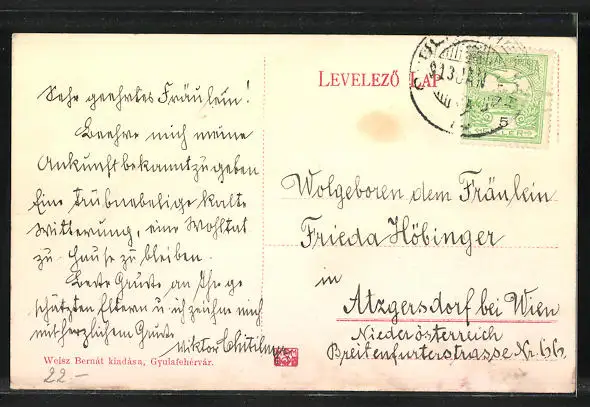 Sehr geehrtes Fräulein!
Beehre mich meine
Ankunft bekannt zu geben
Eine trübnebelige kalte
Witterung, eine Wohltat
zu Hause zu bleiben.
Beste Grüsse an Ihre ge
schätzten Eltern u. ich zeichne mich
mit herzlichem Gruss
Viktor
Weisz Bernát kiadása, Gyulafehérvár.
22-
LEVELEZŐ LAP
913 JAN
5
Wolgeboren dem Fräulein
Frieda Höbinger
in
Atzgersdorf bei Wien
Niederösterreich
Breitenfurterstrasse Nr. 66